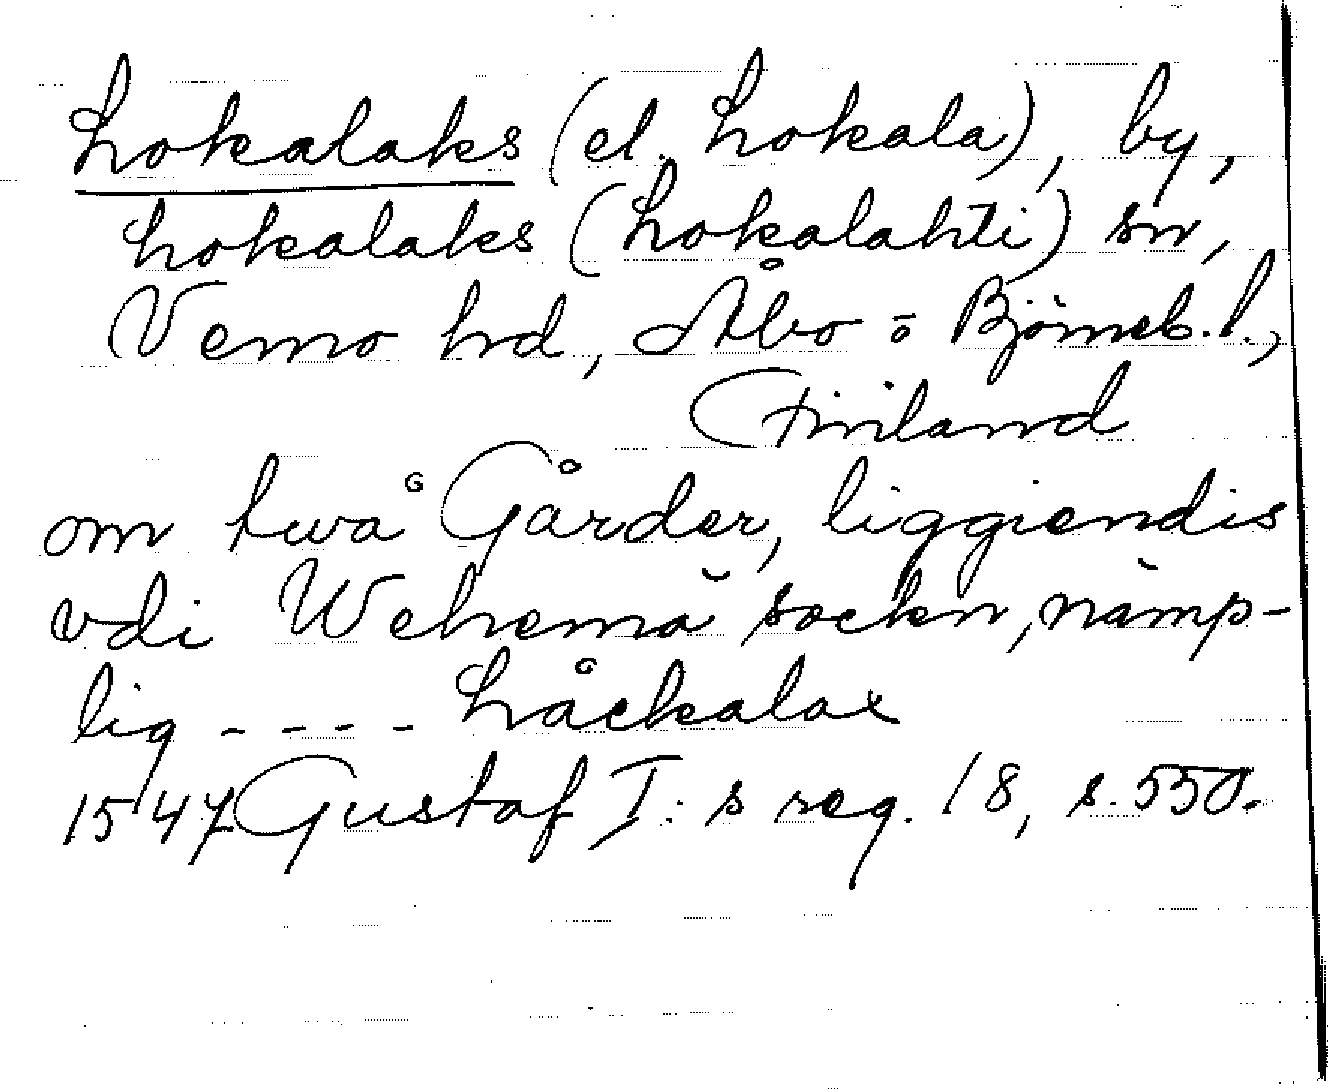 Lokalaks (el. Lokala), by,
Lokalaks (Lokalahti) sn,
Vemo hd, Åbo o Björneb. l.,
Finland
om twå Gårder, liggiendis
vdi Wehemä sockn, nämp-
lig - - - - Låckalax
1547 Gustaf I:s reg. 18, s. 550.